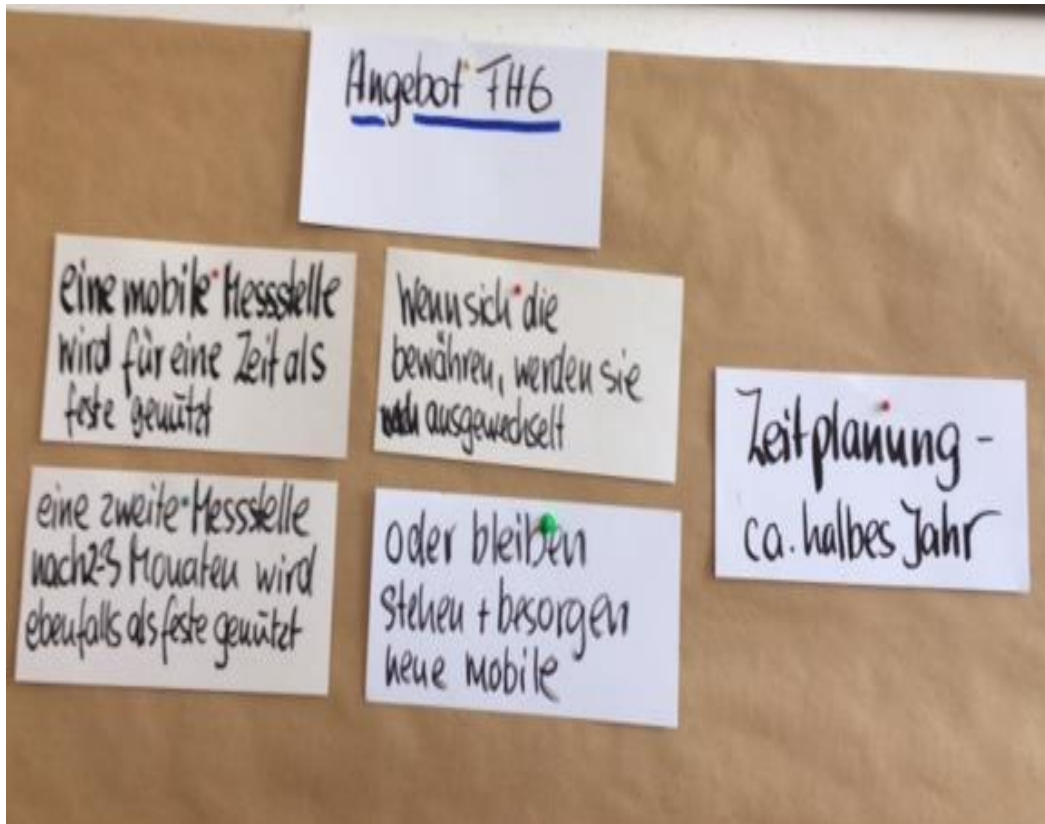 Angebot TH6
eine mobile Messstelle
wird für eine Zeit als
feste genützt
Wenn sich die
bewähren, werden sie
ausgewechselt
eine zweite Messstelle
nach 2-3 Monaten wird
ebenfalls als feste genützt
oder bleiben
stehen + besorgen
neue mobile
Zeitplanung -
ca. halbes Jahr